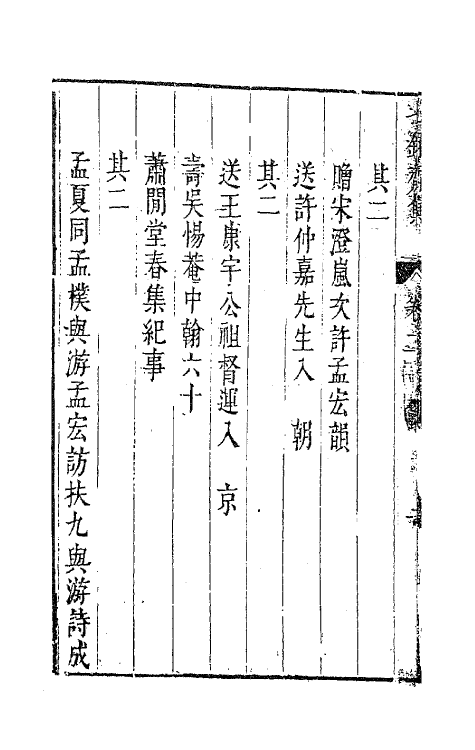 其二
贈宋澄嵐次許孟宏韻
送許仲嘉先生入　朝
其二
送王康宇公祖督運入　京
壽吳惕菴中翰六十
蕭閒堂春集紀事
其二
孟夏同孟樸與游孟宏訪扶九與游詩成